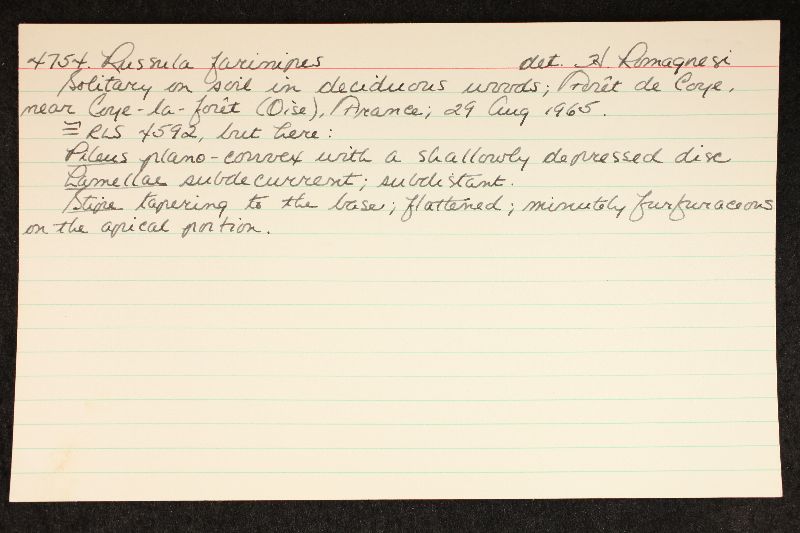 4754. Russula farinipes det. H Romagnesi
Solitary on soil in deciduous woods; Forêt de Coye,
near Coye-la-forêt (Oise), France; 29 Aug 1965.
≡ RLS 4592, but here:
Pileus plano-convex with a shallowly depressed disc
Lamellae subdecurrent; subdistant.
Stipe tapering to the base; flattened; minutely furfuraceous
on the apical portion.